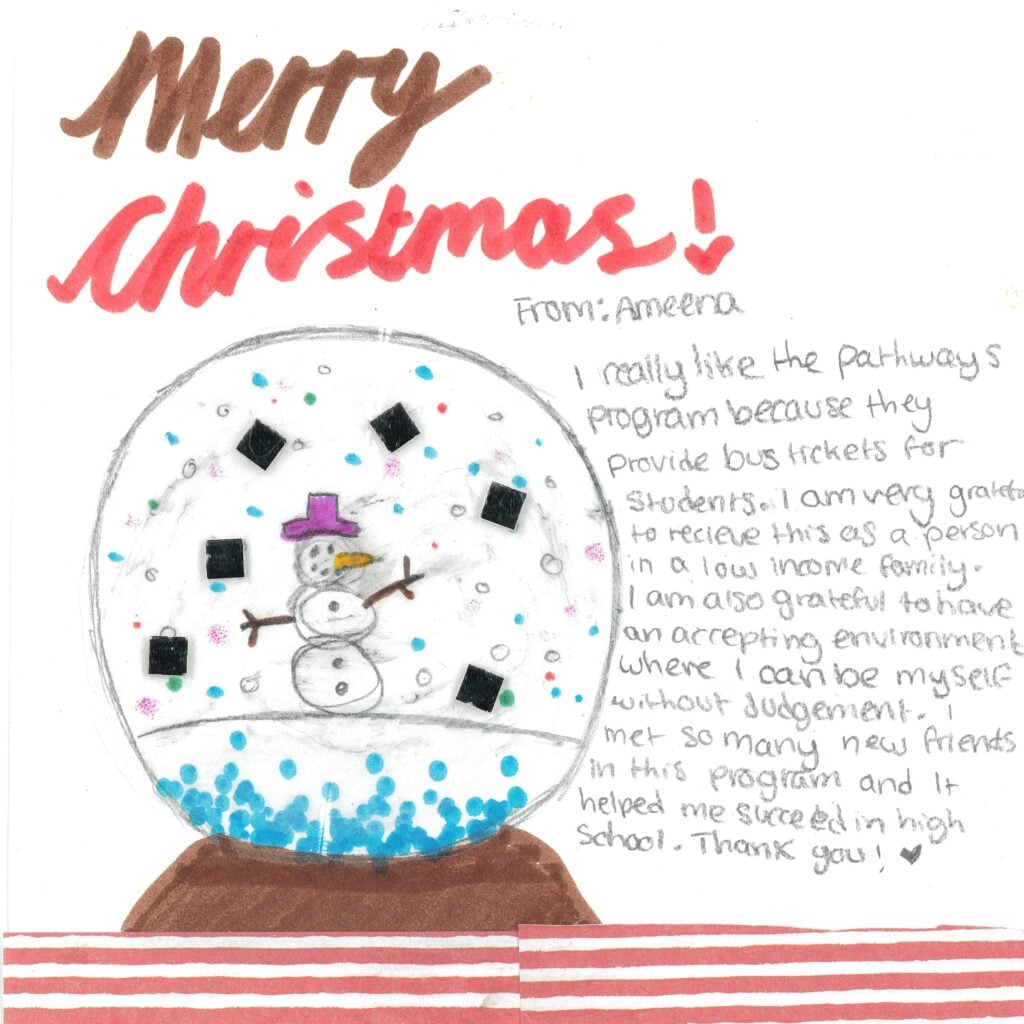 Merry
Christmas!
From: Ameena
I really like the pathways
program because they
provide bus tickets for
students. I am very gratefu
to recieve this as a person
in a low income family.
I am also grateful to have
an accepting environment
where I can be myself
without Judgement. I
met so many new friends
in this program and It
helped me succeed in high
school. Thank you! ♥